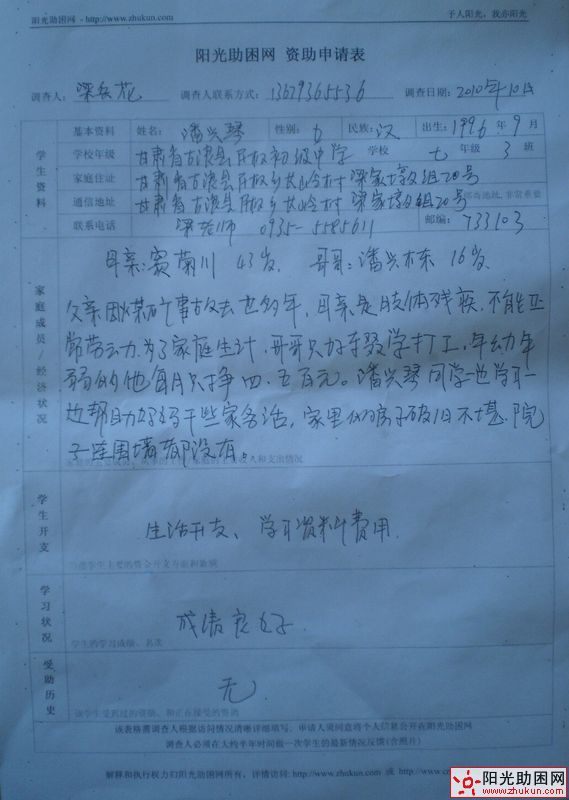 阳光助困网 - http://www.zhukun.com 予人阳光，我亦阳光
阳光助困网 资助申请表
调查人: 梁兵花 调查人联系方式: 13629365536 调查日期: 2010年10月
学生资料
基本资料 姓名: 潘兴琴 性别: 女 民族: 汉 出生: 1996年9月
学校年级 甘肃省古浪县民权初级中学 学校 七年级 3班
家庭住址 甘肃省古浪县民权乡长岭村梁家墩组20号
通信地址 甘肃省古浪县民权乡长岭村梁家墩组20号
联系电话 梁老师 0935-5585611 邮编: 733103
家庭成员/经济状况
母亲: 窦菊川 43岁 哥哥: 潘兴栋 16岁
父亲因煤矿事故去世多年，母亲是肢体残疾，不能正
常劳动力，为了家庭生计，哥哥只好辍学打工，年幼年
弱的他每月只挣四、五百元。潘兴琴同学一边学习一
边帮助妈妈干些家务活，家里的房子破旧不堪，院
子连围墙都没有。
学生开支
生活开支、学习资料费用
学习状况
成绩良好
学生的学习成绩、名次
受助历史
无
该学生受到过的资助、和正在接受的资助
该表格需调查人根据访问情况清晰详细填写，申请人须同意将个人信息公开在阳光助困网
调查人必须在大约半年时间做一次学生的最新情况反馈(含照片)
解释和执行权力归阳光助困网所有，详情访问: http://www.zhukun.com
阳光助困网
www.zhukun.com